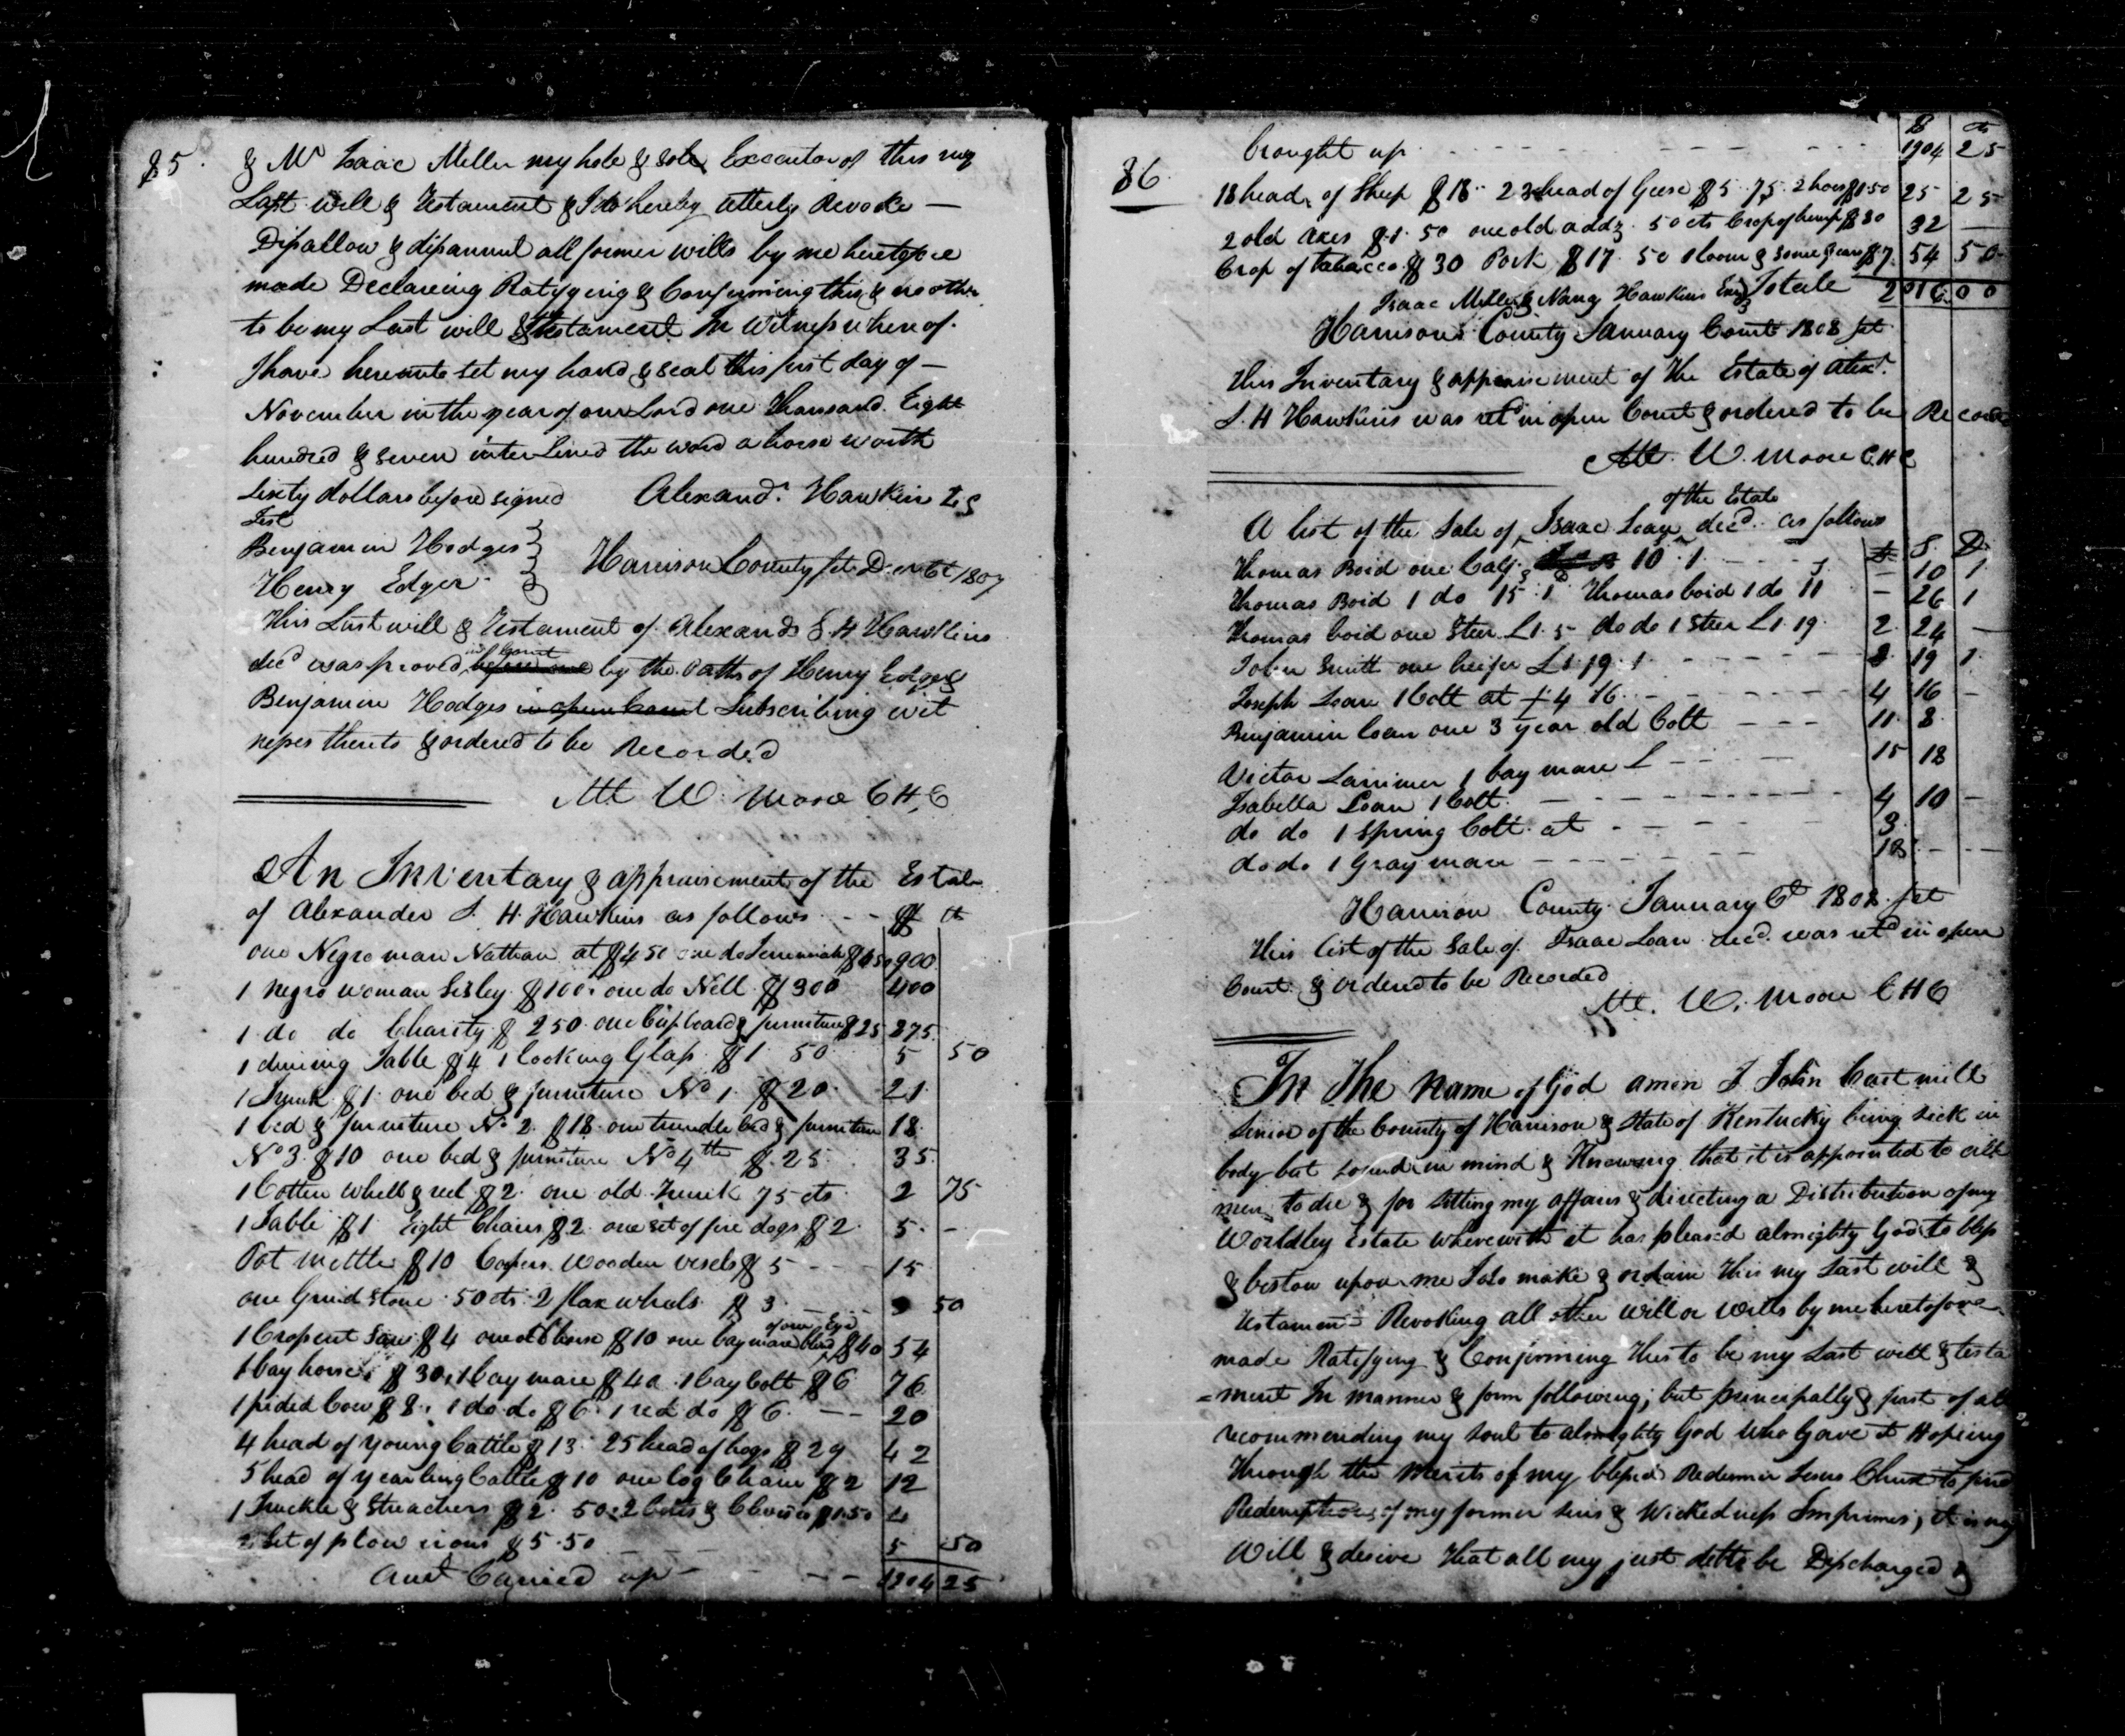 85. & Mr Isaac Miller my hole & sole Executor of this my
Last will & Testament & I do hereby utterly Revoke —
Disallow & disannul all former wills by me heretofore
made Declareing Ratifying & Confirming this & no other
to be my Last will & Testament In Witness whereof.
I have hereunto set my hand & seal this first day of —
November in the year of our Lord one Thousand Eight
hundred & seven interlined the word a horse worth
Sixty dollars before signed Alexandr. Hawkins LS
Test
Benjamin Hodges
Henry Edger Harrison County Sct Decr Ct 1807
This Last will & Testament of Alexandr S. H Hawkins
decd was proved in Court before me by the oaths of Henry Edger &
Benjamin Hodges in open Court Subscribing wit
nesses thereto & ordered to be Recorded
Att W. Moore C H C
An Inventary & appraisement of the Estate
of Alexander S. H Hawkins as follows - - $ cts
one Negro man Nathan at $450 one do Jerrimiah $450 900
1 Negro woman Sisley $100. one do Nell $300 400
1 do do Charity $250. one Cupboard & furniture $25 275
1 dining Table $4 1 looking Glass $1 50 5 50
1 Trunk $1. one bed & furniture No 1. $20. 21.
1 bed & furniture No 2. $18. one trundle bed & furniture 18.
No 3. $10 one bed & furniture No 4th $25 35
1 Cotten Whell & reel $2. one old Trunk 75 cts. 2 75
1 Table $1 Eight Chairs $2. one set of fire dogs $2. 5. -
Pot mettle $10 Coopers Wooden vesels $5 - - - 15
one Grind stone 50 cts. 2 flax whels $3 3 50
of one Eye
1 Cropcut Saw $4 one old horse $10 one bay mare blind $40 54
1 bay horse $30, 1 bay mare $40. 1 bay Colt $6 76
1 pided Cow $8. 1 do do $6. 1 red do $6. - - 20
4 head of young Cattle $13. 25 head of hogs $29 42
5 head of yearling Cattle $10 one log Chain $2 12
1 & Streachers $2. 50. 2 & Clevises $1.50 4
2 Set of plow irons $5.50 5 50
Amt Carried up - - - 1904 25
$ cts
86. brought up - - - 1904 25
18 head of Sheep $18.. 23 head of Geese $5.75. 2 hoes $1.50 25 25
2 old axes $1.50 one old addz. 50 cts Crop of hemp $30 32 —
Crop of tobacco $30 Pork $17.50 1 loom & some gears $7. 54 50
Isaac Miller & Nancy Hawkins Exrs Totale 2016 00
Harrison County January Court 1808 Sct
This Inventary & appraisement of the Estate of Alexr.
S. H Hawkins was retd in open Court & ordered to be Recorded
Att. W. Moore C H C
of the Estate
A list of the Sale of Isaac Loan decd. as follows
£ S. D.
Thomas Boid one Calf 10.1. - - - - 10 1
Thomas Boid 1 do 15.1 Thomas boid 1 do 11 - 26 1
Thomas boid one Steer £1.5 do do 1 Steer £1.19. 2 24 —
John Smith one heifer £1.19.1. - - - 19 1
Joseph Loan 1 Colt at £4 16. - - - 4 16 -
Benjamin Loan one 3 year old Colt - - - 11. 8.
Victor Larrimer 1 bay mare £ - - - 15 18
Isabella Loan 1 Colt. - - - 4 10 -
do do 1 Spring Colt at - - - 3.
do do 1 Gray mare - - - 18. - -
Harrison County January Ct 1808. Sct
This list of the Sale of Isaac Loan decd. was retd in open
Court & ordered to be Recorded
Att. W. Moore C H C
In The Name of God amen I John Cartmill
Senior of the County of Harrison & State of Kentucky being Sick in
body but sound in mind & Knowing that it is appointed to all
men to die & for Setting my affairs & directing a Distribution of my
Worldley Estate wherewith it has pleased almighty God to bless
& bestow upon me I do make & ordain this my Last will &
Testament Revoking all other Will or Wills by me heretofore
made Ratifying & Confirming This to be my Last will & testa
=ment In manner & form following; but principally & first of all
recommending my soul to almighty God Who Gave it Hopeing
Through the Merits of my blessed Redeemer Jesus Christ to find
Redemption of my former sins & Wickedness Imprimes, it is my
Will & desire that all my just debts be Discharged &